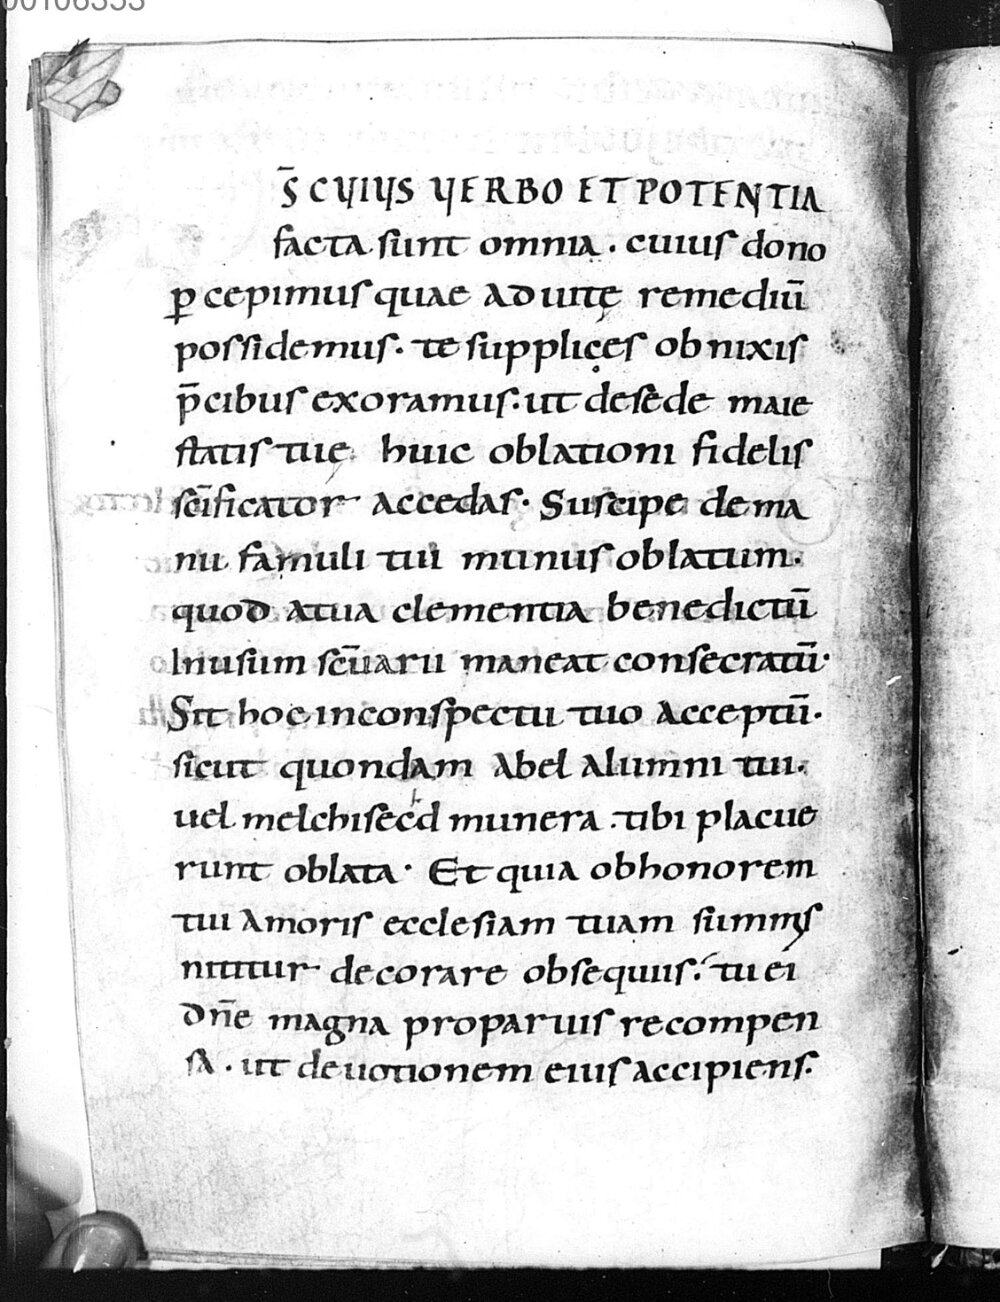 00106353
S̄ CUIUS UERBO ET POTENTIA
facta sunt omnia . cuius dono
ꝑcepimus quae ad uitę remediū
possidemus . te supplicęs obnixis
p̄cibus exoramus . ut desede maie
statis tuę huic oblationi fidelis
sc̄ificator accedas . Suscipe dema
nu famuli tui munus oblatum .
quod atua clementia benedictū
Inusum sc̄uarū maneat consecratū .
Sit hoc inconspectu tuo acceptū .
sicut quondam abel alumni tui .
uel melchisecd munera . tibi placue
runt oblata . Et quia obhonorem
tui amoris ecclesiam tuam summis
nititur decorare obsequiis . tu ei
dn̄e magna proparuis recompen
sa . ut deuotionem eius accipiens .